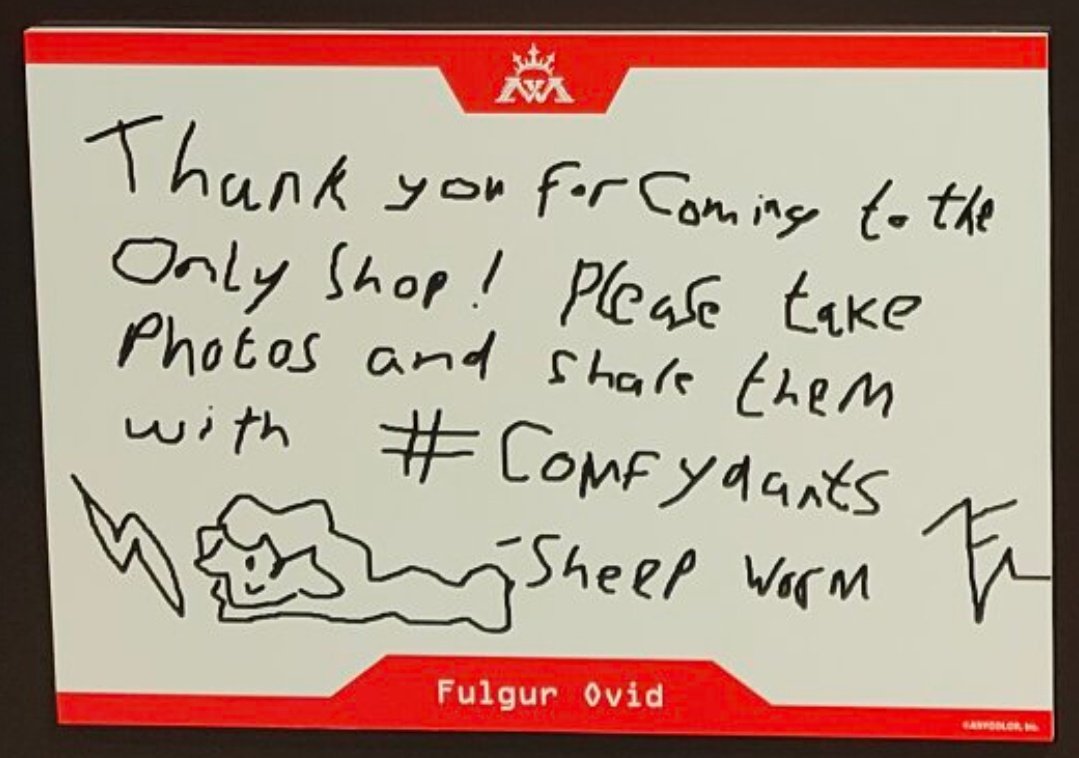 Thank you for Coming to the
Only Shop! Please take
Photos and share them
with #Comfydants
-Sheep worm
Fulgur Ovid
©ANYCOLOR, Inc.